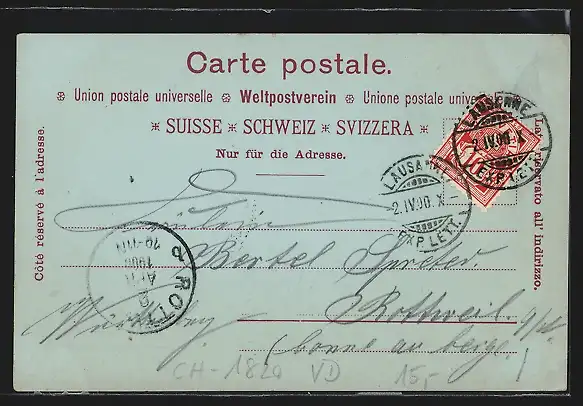 Carte postale.
Union postale universelle Weltpostverein Unione postale unive
SUISSE SCHWEIZ SVIZZERA
Nur für die Adresse.
Côté réservé à l'adresse.
La riservato all' indirizzo.
LAUSANNE
2.IV.00.X
EXP. LETT.
LAUSANNE
2.IV.00.X
EXP. LETT.
Fräulein
Bertel Spreter
Rottweil
Württemberg
(bonne auberge)
CH-1820 VD 15,-